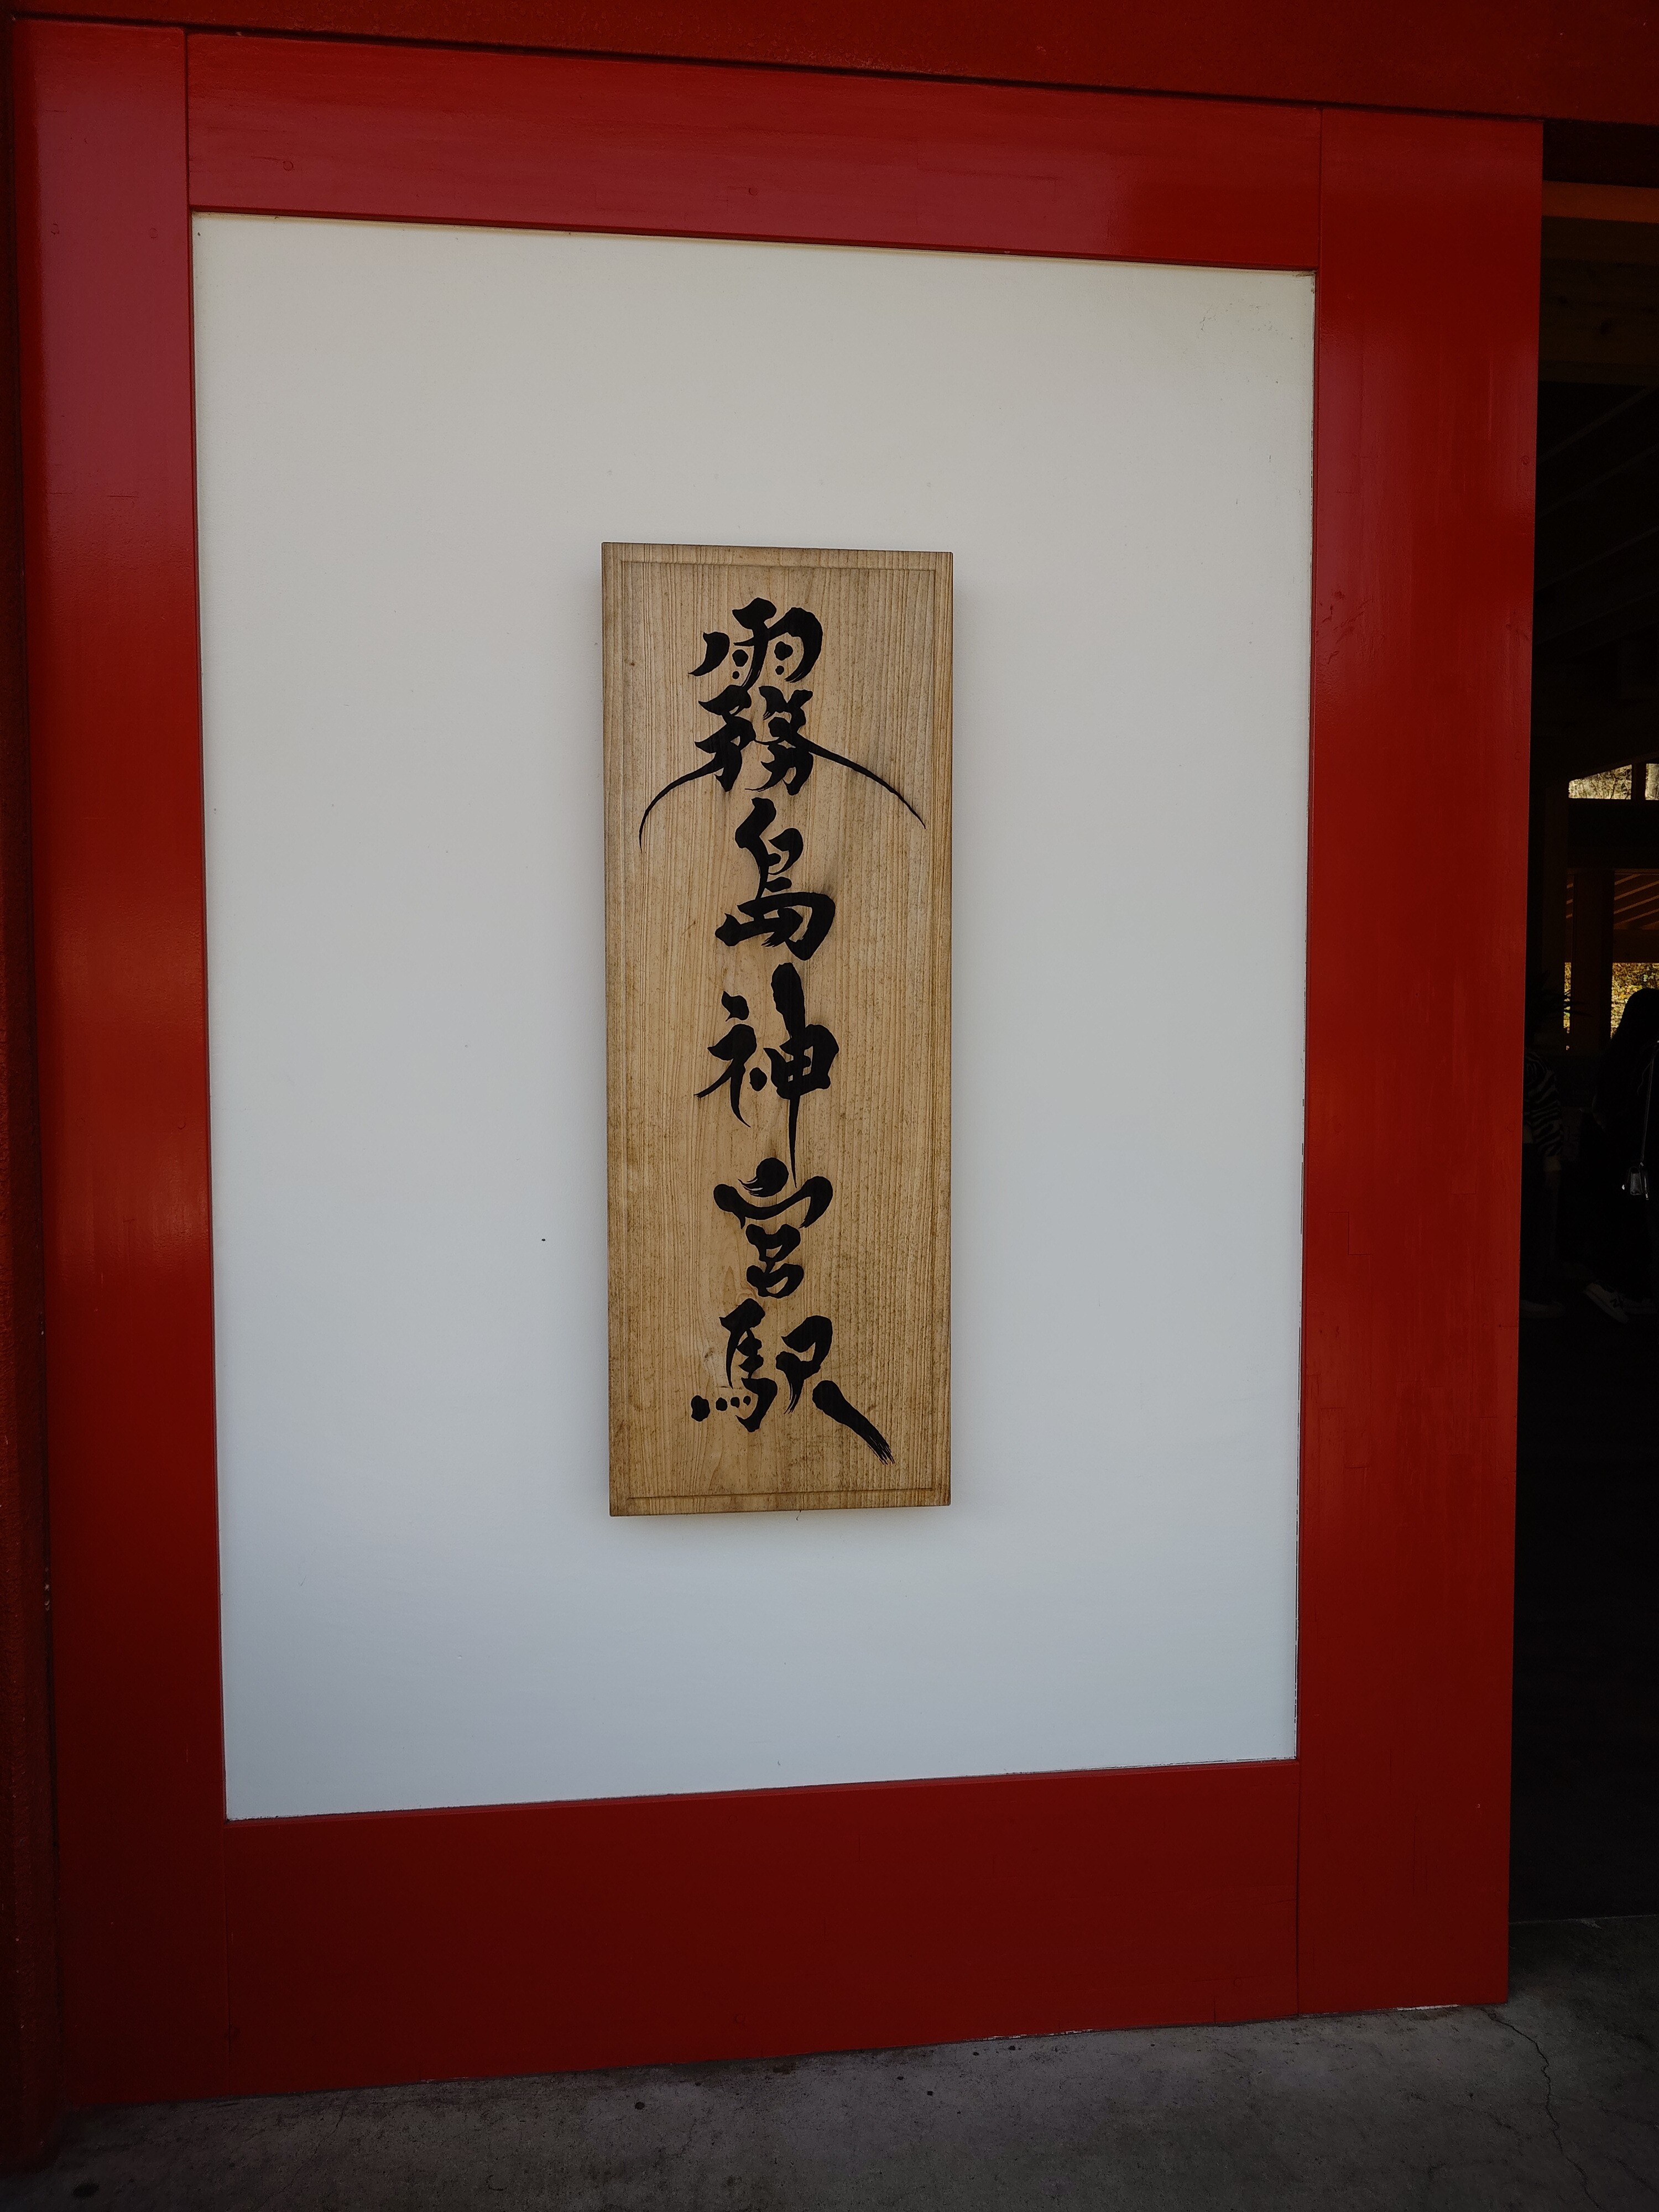 霧島神宮駅